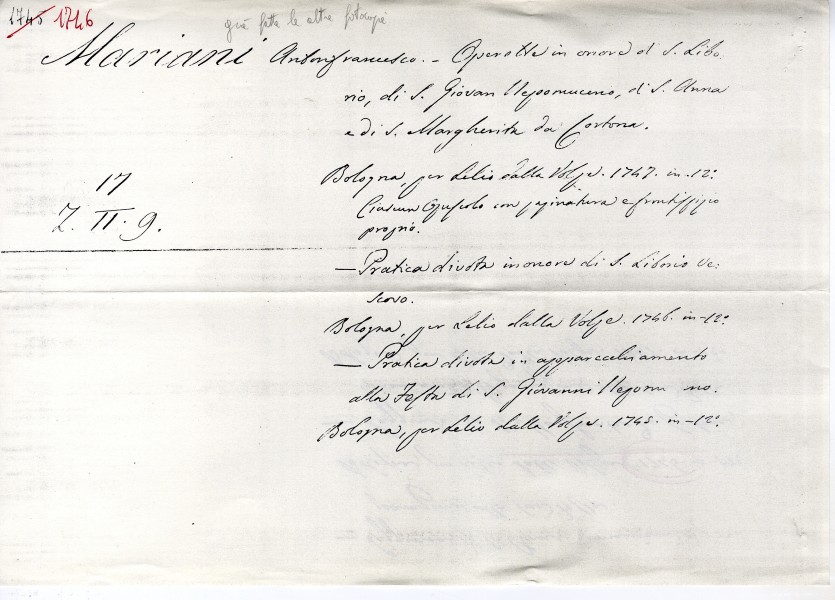 1745 1746
già fatte le altre fotocopie
Mariani Antonfrancesco. - Operette in onore di S. Libo
rio, di S. Giovan Nepomuceno, di S. Anna
e di S. Margherita da Cortona.
Bologna, per Lelio dalla Volpe. 1747. in-12°
17
Ciascun Opuscolo con paginatura e frontispizio
Z. II. 9.
proprio.
— Pratica divota in onore di S. Liborio Ve:
scovo.
Bologna, per Lelio dalla Volpe. 1746. in-12°
— Pratica divota in apparecchiamento
alla Festa di S. Giovanni Nepomu no.
Bologna, per Lelio dalla Volpe. 1745. in-12°.